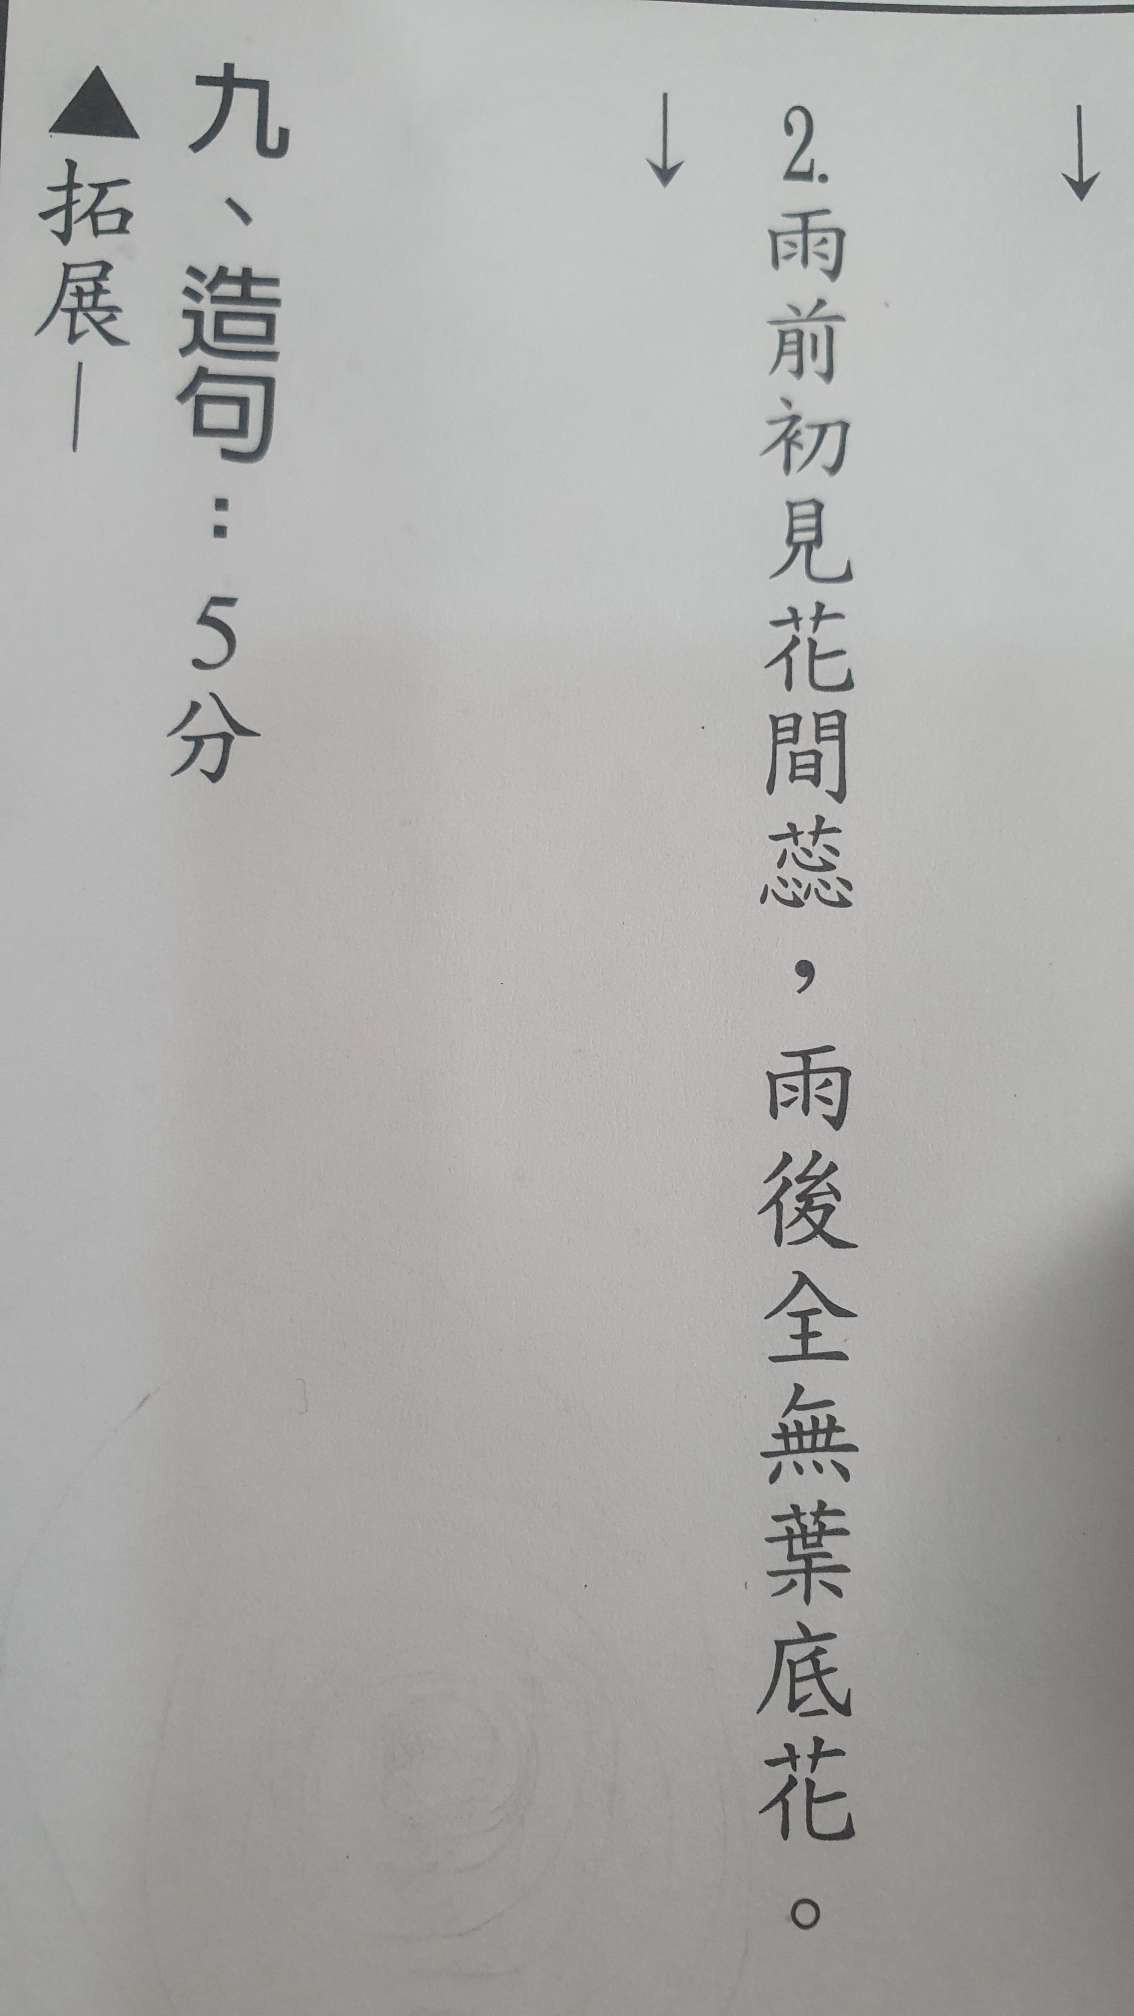 ↓
2.雨前初見花間蕊，雨後全無葉底花。
↓
九、造句：5分
▲拓展—